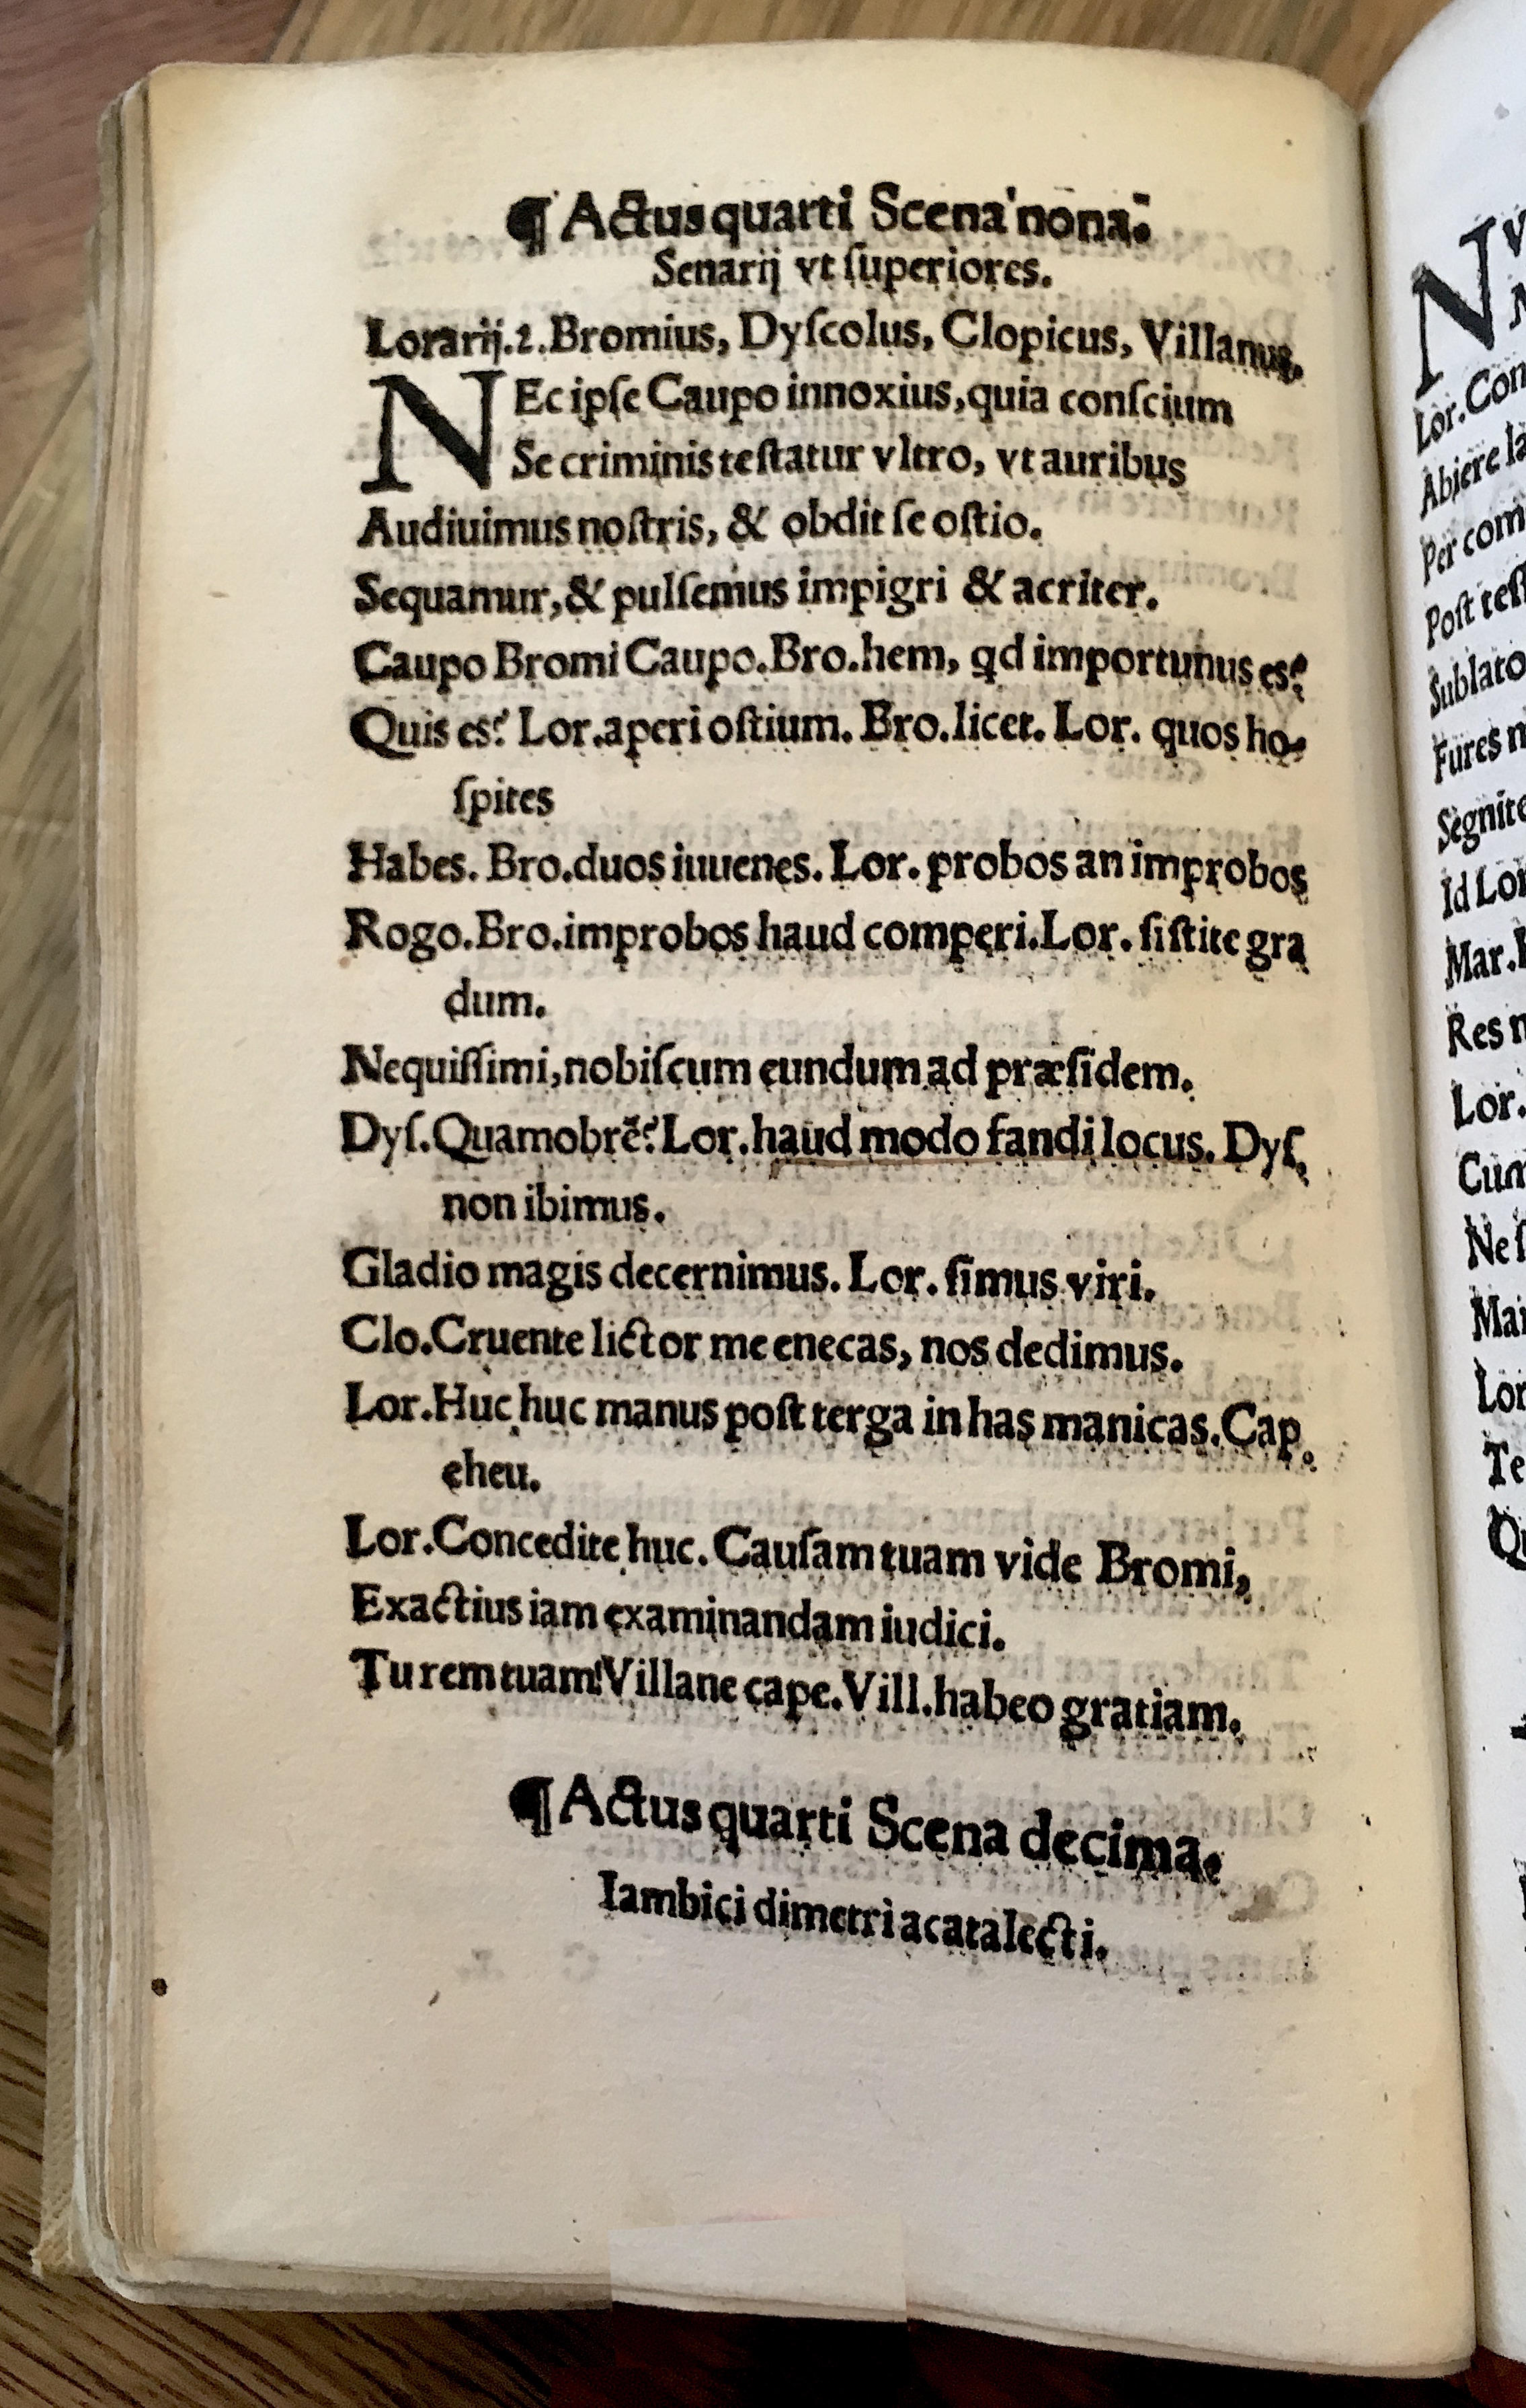 ¶ Actus quarti Scena nona.
Senarij vt ſuperiores.
Lorarij.2.Bromius, Dyſcolus, Clopicus, Villanus.
NEc ipſe Caupo innoxius, quia conſcium
Se criminis teſtatur vltro, vt auribus
Audiuimus noſtris, & obdit ſe oſtio.
Sequamur, & pulſemus impigri & acriter.
Caupo Bromi Caupo. Bro. hem, qd importunus es?
Quis es? Lor. aperi oſtium. Bro. licet. Lor. quos ho-
ſpites
Habes. Bro. duos iuuenes. Lor. probos an improbos
Rogo. Bro. improbos haud comperi. Lor. ſiſtite gra
dum.
Nequiſſimi, nobiſcum eundum ad præſidem.
Dyſ. Quamobrē? Lor. haud modo fandi locus. Dyſ.
non ibimus.
Gladio magis decernimus. Lor. ſimus viri.
Clo. Cruente lictor me enecas, nos dedimus.
Lor. Huc huc manus poſt terga in has manicas. Cap.
eheu.
Lor. Concedite huc. Cauſam tuam vide Bromi,
Exactius iam examinandam iudici.
Tu rem tuam! Villane cape. Vill. habeo gratiam.
¶ Actus quarti Scena decima.
Iambici dimetri acatalecti.
N
Lor. Con
Abiere la
Per com
Poſt teſt
Sublato
Fures n
Segnite
Id Lor
Mar.
Res n
Lor.
Cum
Ne ſ
Mai
Lor
Te
Qu